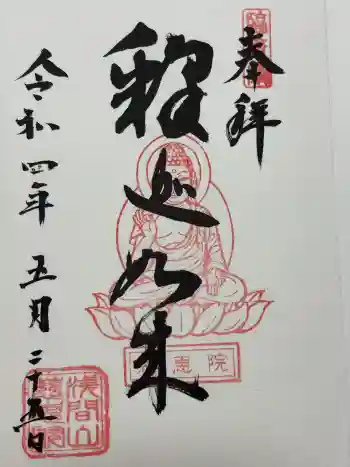 奉拝
釈迦如来
令和四年五月二十五日
恵院
浅間山